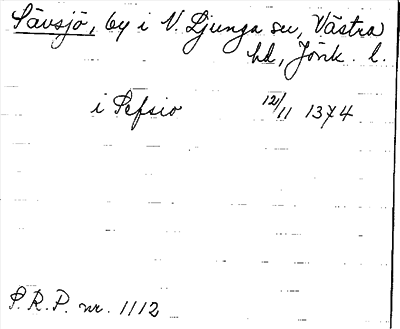 Sävsjö, by i V. Ljunga sn, Västra
hd, Jönk. l.
i Sefsio 12/11 1374
S.R.P. nr. 1112